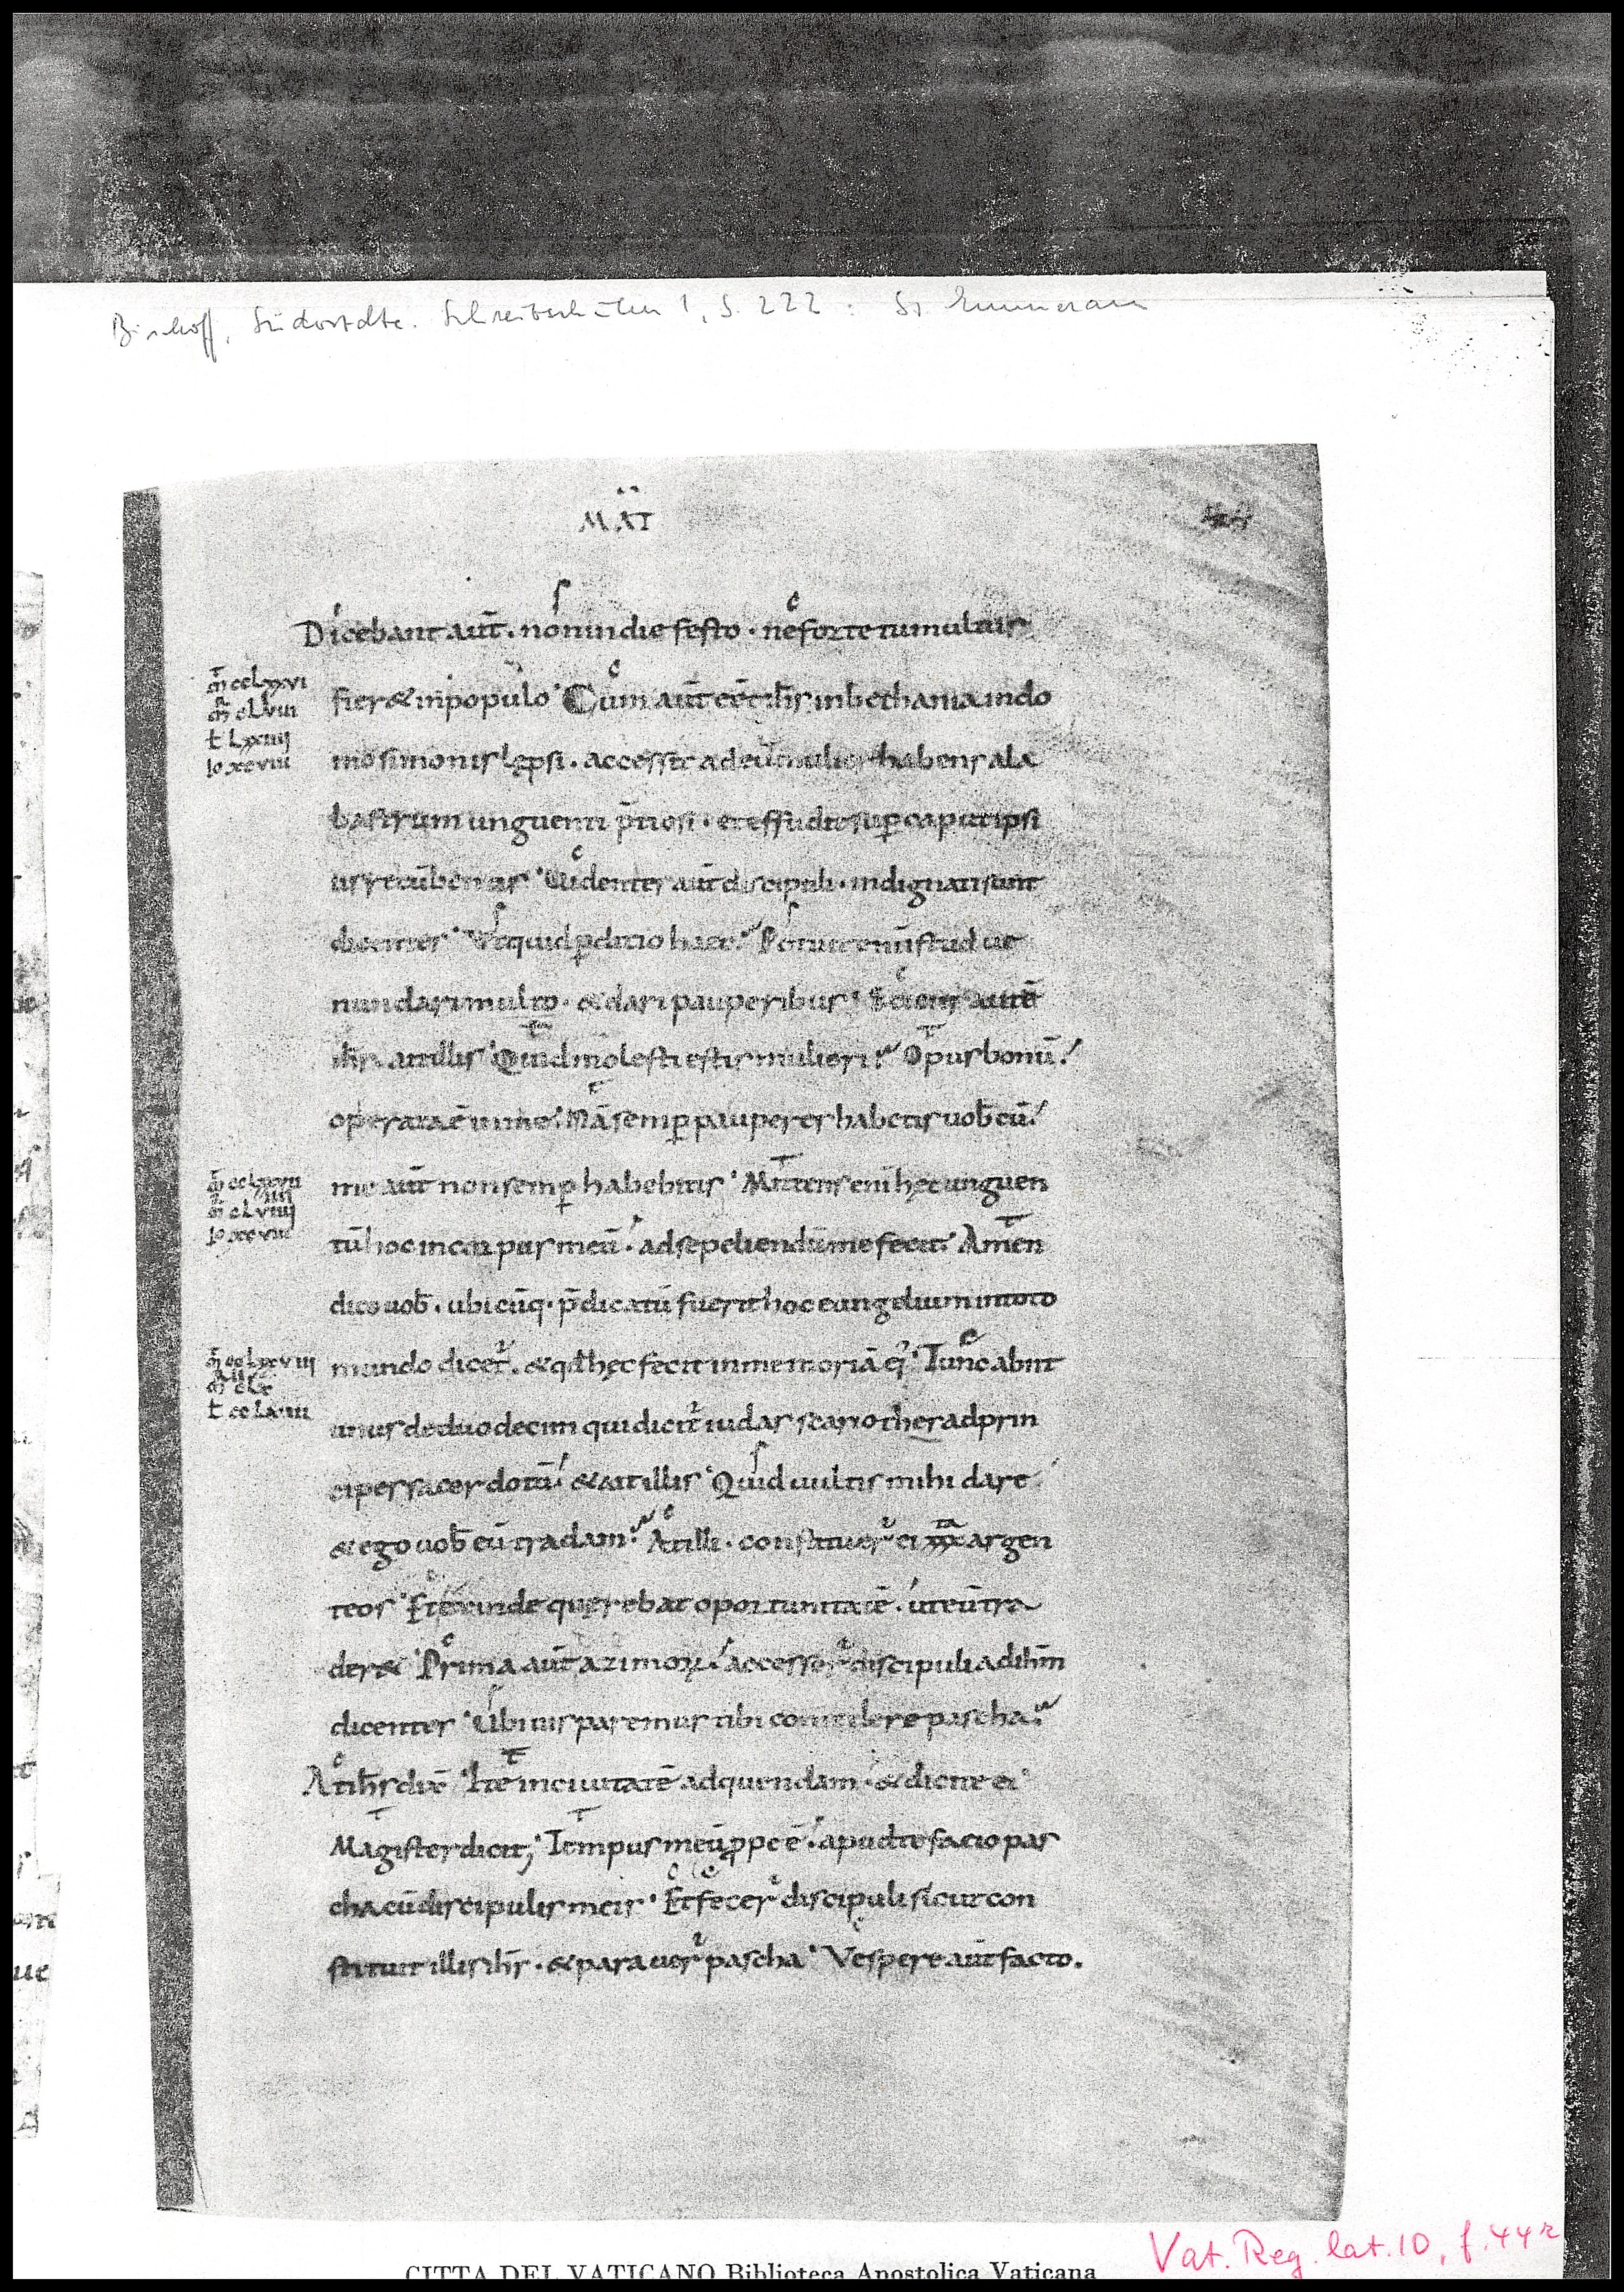 Bischoff, Südostdte. Schreibschulen I, S. 222 : St Emmeram
MAT
44
Dicebant aut̄. non in die festo . ne forte tumultus
m̄ cclxxvi
fier& in populo Cum aut̄ eēt ih̄s in bethania in do
m̄ clviii
t lxxiiii
mo simonis leprosi . accessit ad eū mulier habens ala
Io xcviii
bastrum unguenti p̄tiosi . et effudit sup caput ipsi
us recūbentis Videntes aut̄ discipuli . indignati sunt
dicentes Vt quid pditio haec? Potuit enī istud ue
nundari multo . & dari pauperibus Sciens autē
ih̄s . ait illis Quid molesti estis mulieri? Opus bonū
operata ē in me Nā semp pauperes habetis uob̄cū
me aut̄ non semp habebitis Mittens enī hęc unguen
Io xcviii
tū hoc in corpus meū . ad sepeliendū me fecit Amen
dico uob̄ . ubicūq. p̄dicatū fuerit hoc euangelium in toto
mundo dicet̄ . & qd̄ hęc fecit in memoriā ei Tunc abiit
unus de duodecim qui dicit̄ iudas scarioth̨es ad prin
cipes sacerdotū & ait illis Quid uultis mihi dare
& ego uob̄ eū tradam? At illi . constituer̄ ei xxx argen
teos Et exinde querebat oportunitatē . ut eū tra
der& Prima aut̄ azimoꝝ accesser̄ discipuli ad ih̄m
dicentes Vbi uis paremus tibi comedere pascha?
At ih̄s dix̄ Ite in ciuitatē ad quendam . & dicite ei
Magister dicit; Tempus meū ppe ē . apud te facio pas
cha cū discipulis meis . Et fecer̄ discipuli sicut con
stituit illis ih̄s . & parauer̄ pascha Vespere aut̄ facto.
Vat. Reg. lat. 10, f. 44r
CITTA DEL VATICANO Biblioteca Apostolica Vaticana